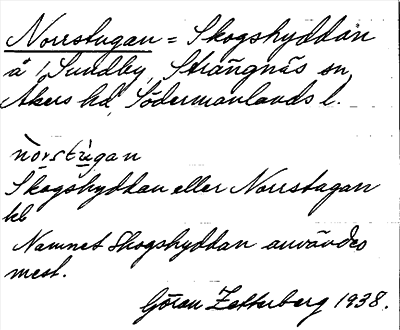 Norrstugan = Skogshyddan
å Sundby, Strängnäs sn,
Åkers hd, Södermanlands l.
norstugan
Skogshyddan eller Norrstugan
kb
Namnet Skogshyddan användes
mest.
Göran Zetterberg 1938.